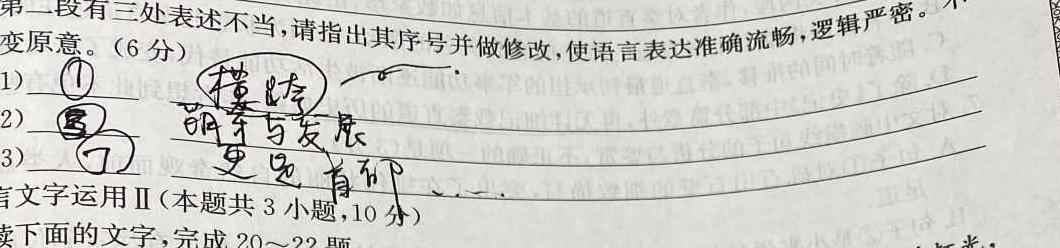 第二段有三处表述不当,请指出其序号并做修改,使语言表达准确流畅,逻辑严密。不
变原意。(6 分)
1) ① 横跨
2) 萌芽与发展
3) ⑦ 更是首都……
言文字运用Ⅱ(本题共 3 小题,10 分)
读下面的文字,完成 20～22 题